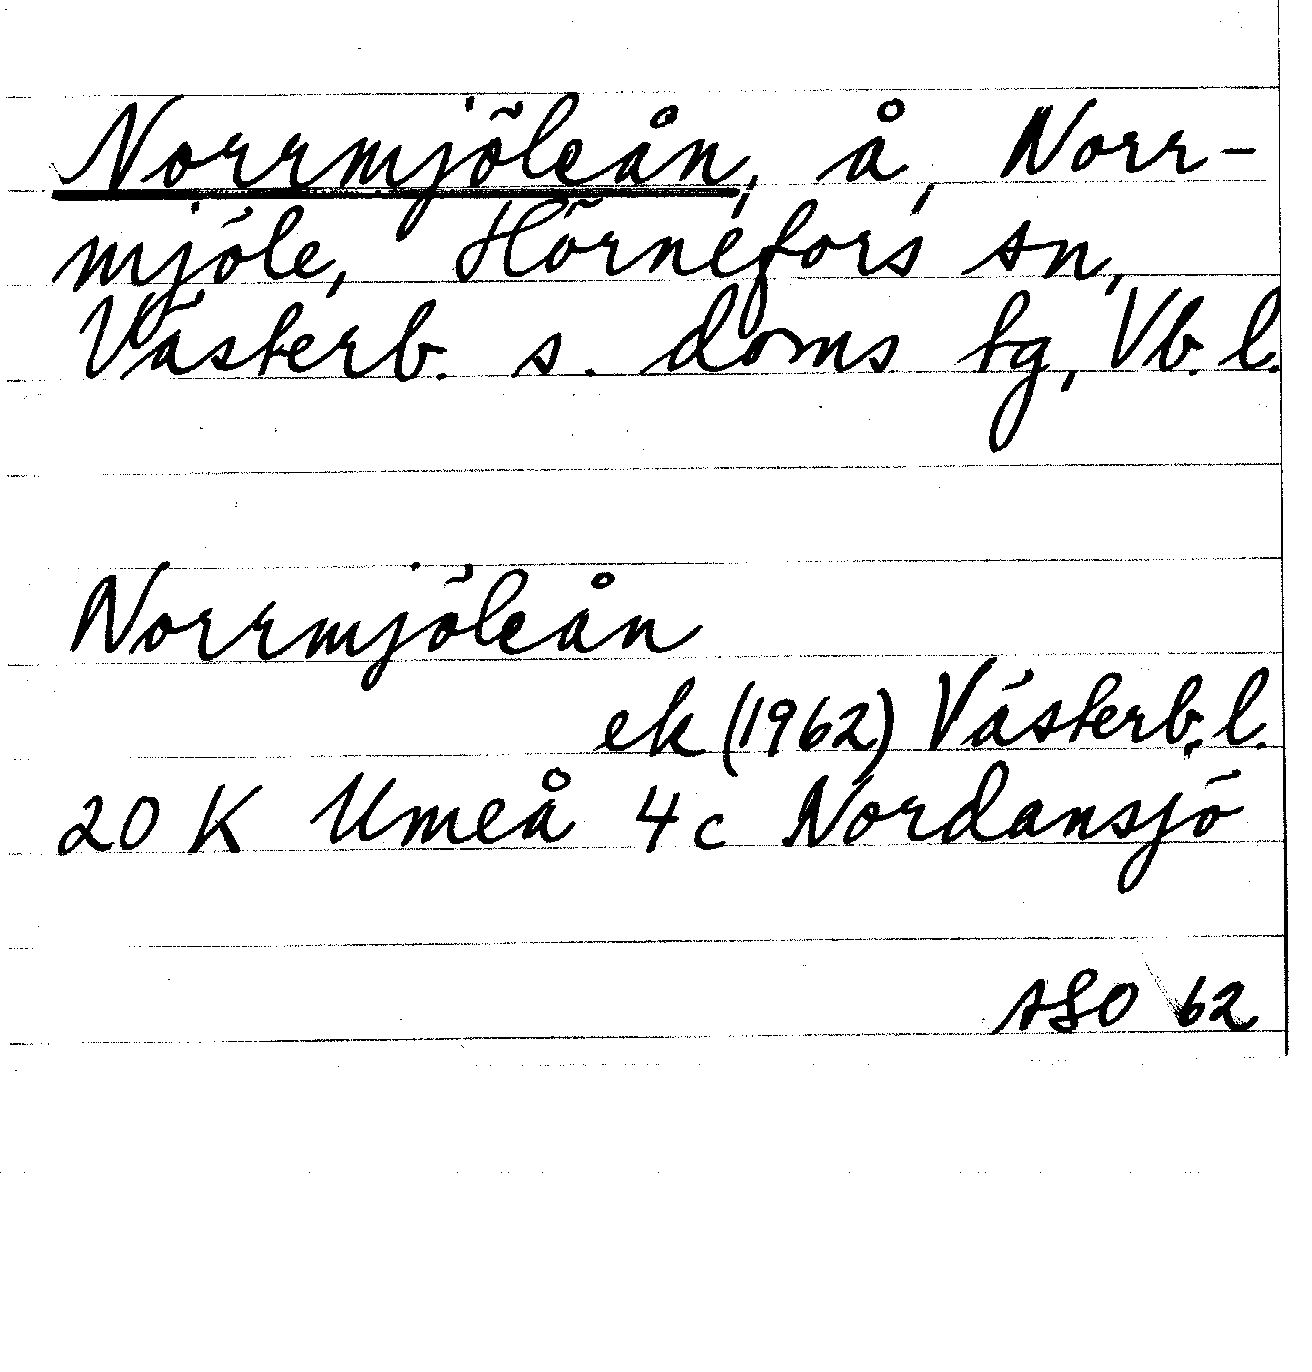 Norrmjöleån, å, Norr-
mjöle, Hörnefors sn,
Västerb. s. doms tg, Vb. l.
Norrmjöleån
ek (1962) Västerb. l.
20 K Umeå 4c Nordansjö
ASO 62